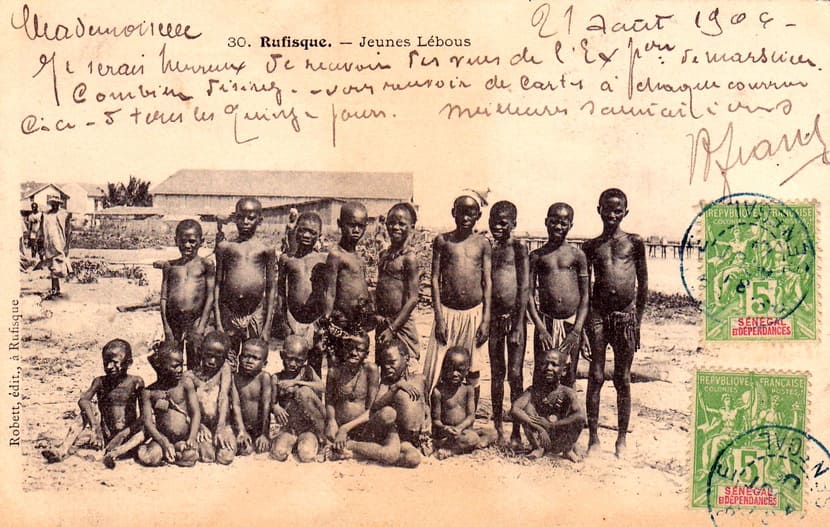 Mademoiselle
21 Août 1904
30. Rufisque. — Jeunes Lébous
Je serais heureux de recevoir des vues de l'Exp^on de Marseille.
Combien désirez-vous recevoir de cartes à chaque courrier
tous les quinze jours. Meilleures salutations
Robert, édit., à Rufisque
REPVBLIQVE FRANÇAISE
COLONIES POSTES
5
SÉNÉGAL
ET DÉPENDANCES
REPVBLIQVE FRANÇAISE
COLONIES POSTES
5
SÉNÉGAL
ET DÉPENDANCES